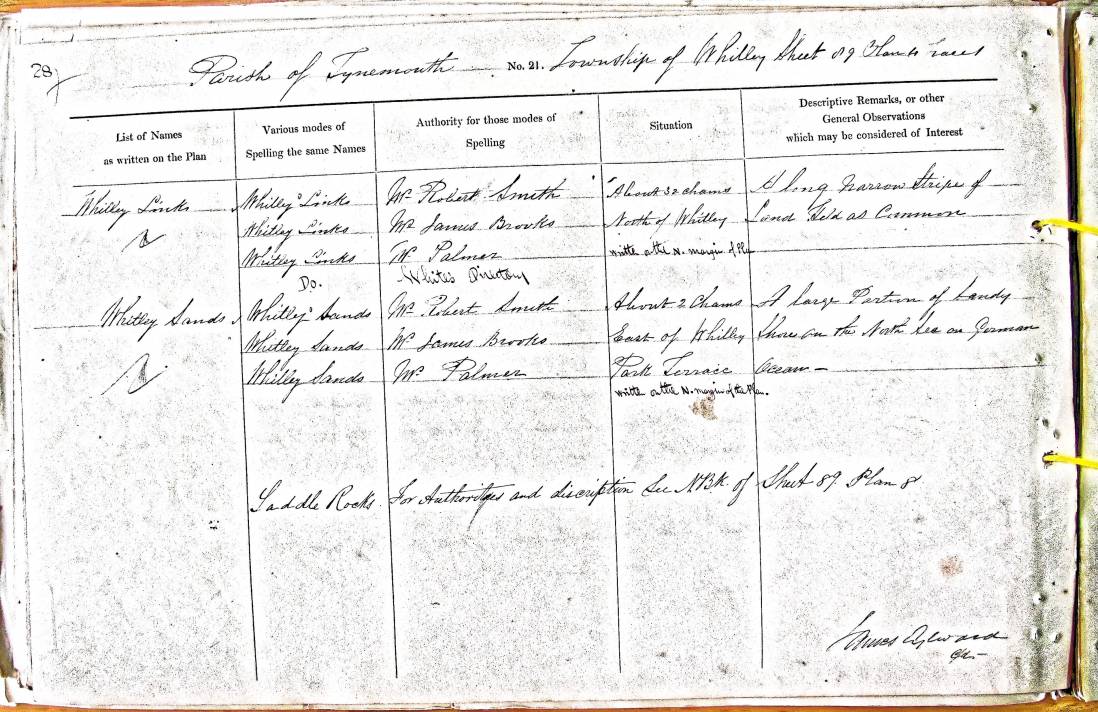 28
Parish of Tynemouth No. 21. Township of Whitley Sheet 89
List of Names
as written on the Plan
Various modes of
Spelling the same Names
Authority for those modes of
Spelling
Situation
Descriptive Remarks, or other
General Observations
which may be considered of Interest
Whitley Links Whitley Links Mr Robert Smith About 32 chains A long narrow Stripe of
Whitley Links Mr James Brooks North of Whitley Land Held as Common
Whitley Links Mr Palmer written on the N. margin of Plan
Do. Whites Directory
Whitley Sands Whitley Sands Mr Robert Smith About 2 Chains A large Portion of Sandy
Whitley Sands Mr James Brooks East of Whitley Shore on the North Sea or German
Whitley Sands Mr Palmer Park Terrace Ocean –
written on the N. margin of the Plan.
Saddle Rocks. For Authorities and discription See N. Bk of Sheet 89 Plan 8
James Aylward